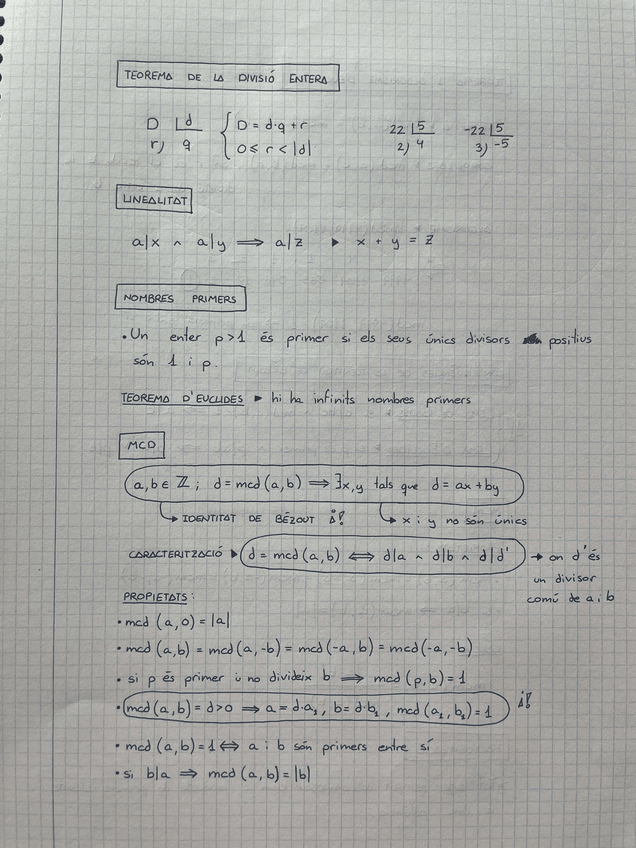 TEOREMA DE LA DIVISIÓ ENTERA
D d D = d·q + r 22 5 -22 5
r) q 0 ≤ r < |d| 2) 4 3) -5
LINEALITAT
a|x ∧ a|y ⟹ a|z ▸ x + y = z
NOMBRES PRIMERS
• Un enter p>1 és primer si els seus únics divisors positius
són 1 i p.
TEOREMA D'EUCLIDES ▸ hi ha infinits nombres primers
MCD
a,b ∈ ℤ ; d = mcd (a,b) ⟹ ∃x,y tals que d = ax + by
↳ IDENTITAT DE BÉZOUT ¡! ↳ x i y no són únics
CARACTERITZACIÓ ▸ d = mcd (a,b) ⟺ d|a ∧ d|b ∧ d|d' → on d'és
un divisor
comú de a i b
PROPIETATS:
• mcd (a,0) = |a|
• mcd (a,b) = mcd (a,-b) = mcd (-a,b) = mcd (-a,-b)
• si p és primer i no divideix b ⟹ mcd (p,b) = 1
• mcd (a,b) = d>0 ⟹ a = d·a₁, b = d·b₁, mcd (a₁,b₁) = 1 ¡!
• mcd (a,b) = 1 ⟺ a i b són primers entre sí
• si b|a ⟹ mcd (a,b) = |b|